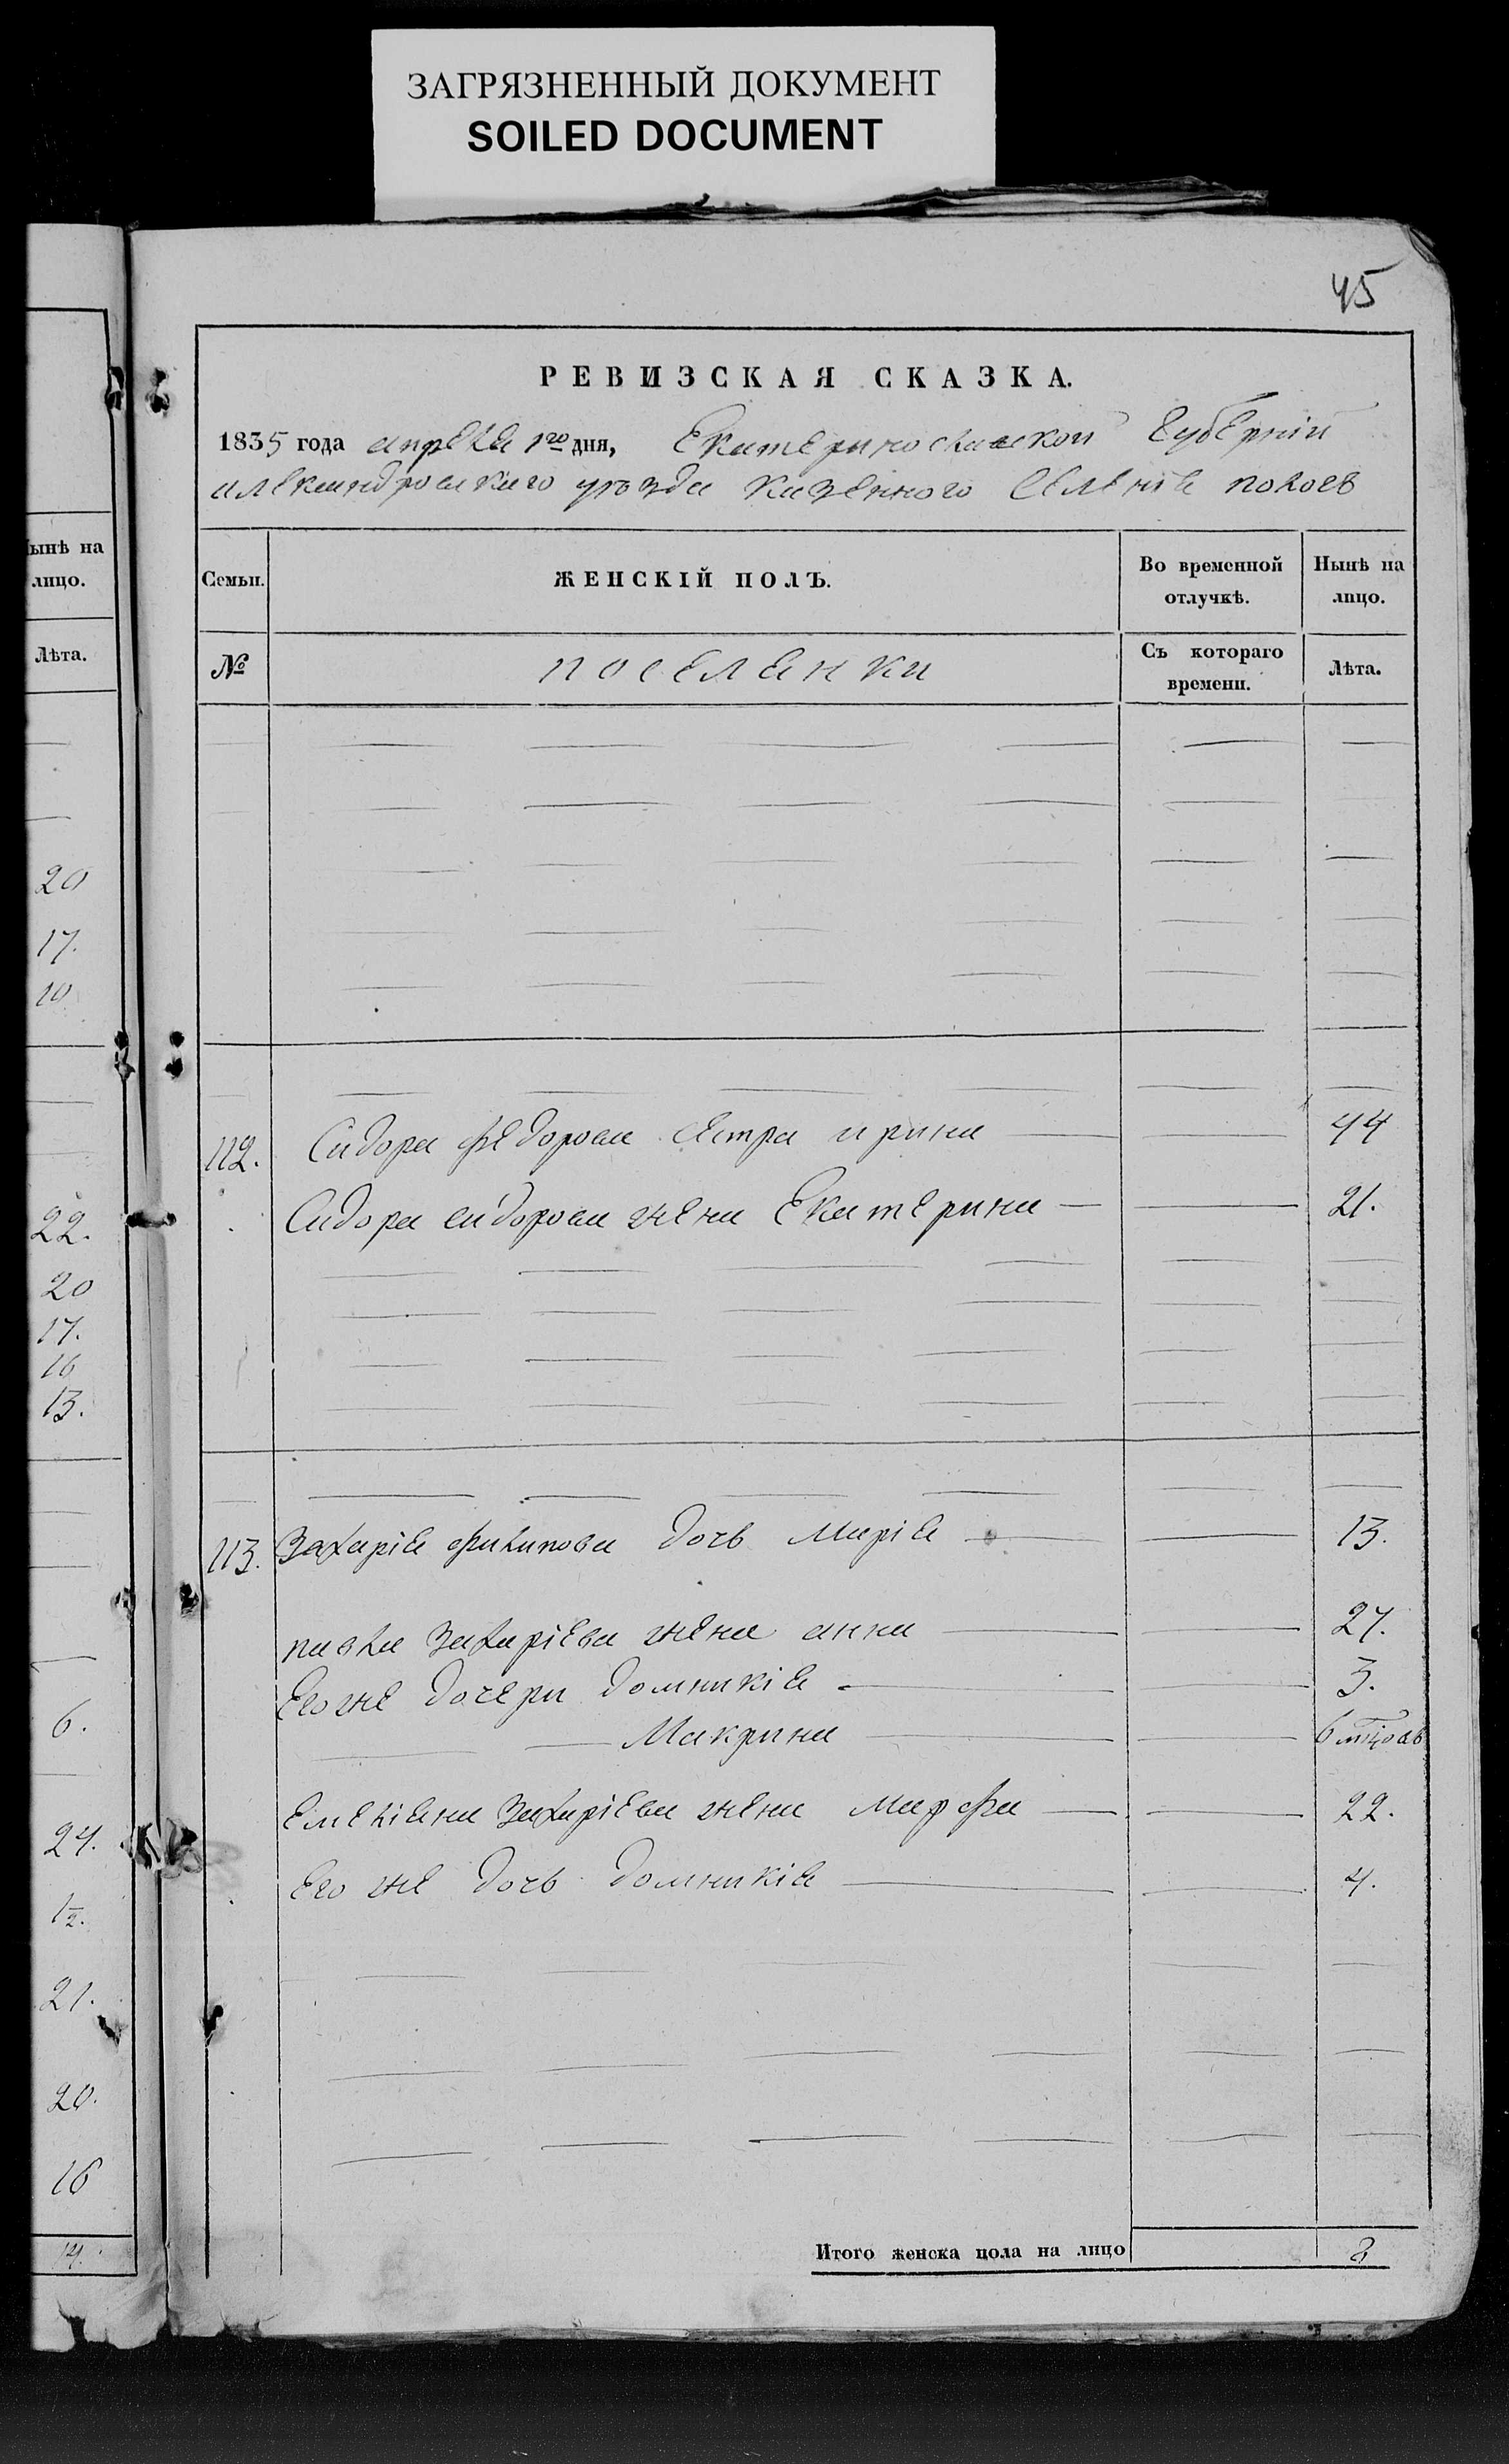 ЗАГРЯЗНЕННЫЙ ДОКУМЕНТ
SOILED DOCUMENT
45
РЕВИЗСКАЯ СКАЗКА.
1835 года апреля 1го дня, Екатеринославской Губернїи
александровскаго уезда казенного Селенїя
Нынѣ на
лицо.
Лѣта.
20
17.
10
22.
20
17.
16
13.
6.
24.
1/2.
21.
20.
16
14.
Семьи.
ЖЕНСКІЙ ПОЛЪ.
Во временной
отлучкѣ.
Нынѣ на
лицо.
№
поселянки
Съ котораго
времени.
Лѣта.
112. Сидора федорова сестра ирина 44
Сидора сидорова жена Екатерина 21.
113. Захарїя филипова дочь Марїя 13.
павла Захарїева жена анна 27.
Его же дочери домникїя 3.
Макрина 6 мцовъ
Емелїяна Захарїева жена марфа 22.
Его же дочь домникїя 4.
Итого женска пола на лицо 8